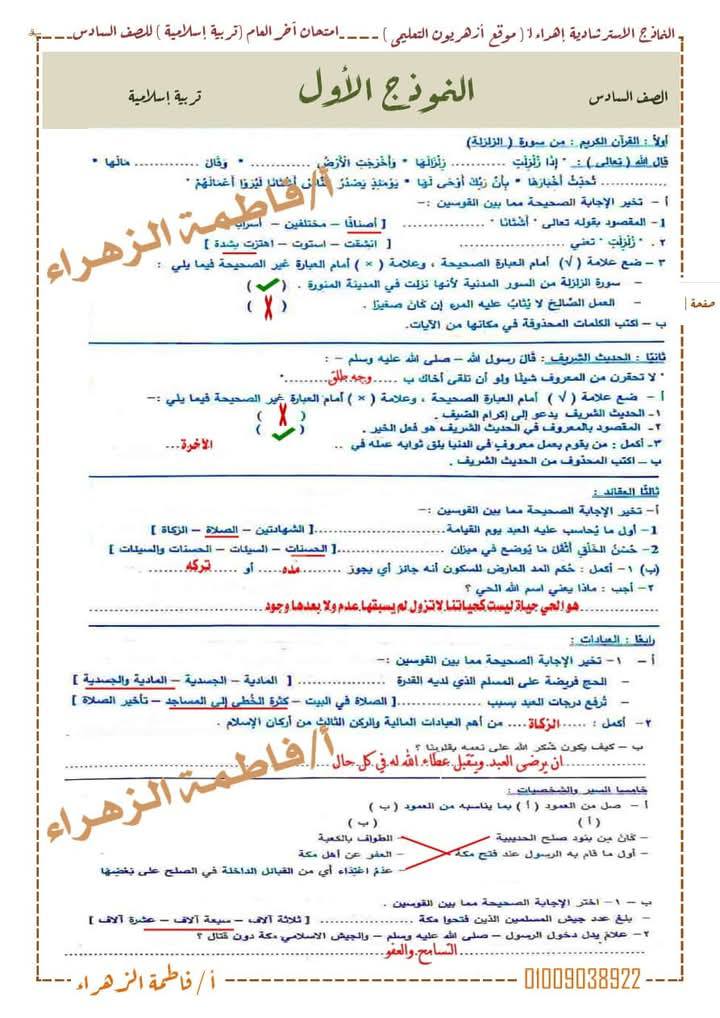 النماذج الاسترشادية إهداء / ( موقع أزهريون التعليمى ) ــــــ امتحان آخر العام (تربية إسلامية ) للصف السادس
الصف السادس النموذج الأول تربية إسلامية
أولاً : القرآن الكريم : من سورة ( الزلزلة)
قال الله ( تعالى ) : " إِذَا زُلْزِلَتِ ............ زِلْزَالَهَا * وَأَخْرَجَتِ الْأَرْضُ ............ * وَقَالَ ............ مَالَهَا *
............ تُحَدِّثُ أَخْبَارَهَا * بِأَنَّ رَبَّكَ أَوْحَى لَهَا * يَوْمَئِذٍ يَصْدُرُ النَّاسُ أَشْتَاتًا لِيُرَوْا أَعْمَالَهُمْ "
أ – تخير الإجابة الصحيحة مما بين القوسين :-
1- المقصود بقوله تعالى " أَشْتَاتًا " ............ [ أصنافًا – مختلفين – أسرابًا
2 . " زُلْزِلَتِ " تعني ............ [ انشقت – استوت – اهتزت بشدة ]
3 – ضع علامة (√) أمام العبارة الصحيحة ، وعلامة ( × ) أمام العبارة غير الصحيحة فيما يلي :
– سورة الزلزلة من السور المدنية لأنها نزلت في المدينة المنورة . ( ✓ )
– العمل الصَّالِحَ لا يُثَابُ عليه المرء إن كَانَ صغيرًا . ( X )
ب – اكتب الكلمات المحذوفة في مكانها من الآيات.
صفحة |
ثانيًا : الحديث الشريف : قَالَ رسول الله – صلى الله عليه وسلم – :
" لا تحقرن من المعروف شيئًا ولو أن تلقى أخاك ب ......وجه طلق......"
أ – ضع علامة ( √ ) أمام العبارة الصحيحة ، وعلامة ( × ) أمام العبارة غير الصحيحة فيما يلي :-
1- الحديث الشريف يدعو إلى إكرام الضيف . ( X )
2- المقصود بالمعروف في الحديث الشريف هو فعل الخير . ( ✓ )
3- أكمل : من يقوم بعمل معروفٍ في الدنيا يلق ثوابه عمله في .. الآخرة...
ب – اكتب المحذوف من الحديث الشريف .
ثالثًا العقائد :
أ– تخير الإجابة الصحيحة مما بين القوسين :-
1– أول ما يُحاسب عليه العبد يوم القيامة............[ الشهادتين – الصلاة – الزكاة ]
2– حُسْنُ الخُلُقِ أثْقَلُ مَا يُوضع في ميزان ............[ الحسنات – السيئات – الحسنات والسيئات ]
(ب) 1– أكمل : حُكم المد العارض للسكون أنه جائز أي يجوز ......مده...... أو ......تركه......
2– أجب : ماذا يعني اسم الله الحي ؟
هو الحي حياة ليست كحياتنا، لا تزول لم يسبقها عدم ولا بعدها وجود
رابعًا : العبادات :
أ – 1– تخير الإجابة الصحيحة مما بين القوسين :-
– الحج فريضة على المسلم الذي لديه القدرة ............ [ المادية – الجسدية – المادية والجسدية ]
– تُرفع درجات العبد بسبب ............[ الصلاة في البيت – كثرة الخُطى إلى المساجد – تأخير الصلاة ]
2– أكمل : ......الزكاة.... من أهم العبادات المالية والركن الثالث من أركان الإسلام .
ب – كيف يكون شكر الله على نعمه بقلوبنا ؟
ان يرضى العبد ويتقبل عطاء الله له في كل حال
خامسا السير والشخصيات :
أ – صل من العمود ( أ ) بما يناسبه من العمود ( ب )
( أ ) ( ب )
– كَانَ مِن بنود صلح الحديبية – الطواف بالكعبة
– أول ما قام به الرسول عند فتح مكة – العفو عن أهل مكة
– عدم اعْتِدَاء أي من القبائل الداخلة في الصلح على بَعْضِهَا
ب – 1– اختر الإجابة الصحيحة مما بين القوسين .
– بلغ عدد جيش المسلمين الذين فتحوا مكة ............ [ ثلاثة آلاف – سبعة آلاف – عشرة آلاف ]
2– علام يدل دخول الرسول – صلى الله عليه وسلم – والجيش الاسلامي مكة دون قتال ؟
التسامح والعفو
أ/فاطمة الزهراء
أ/فاطمة الزهراء
أ/ فاطمة الزهراء 01009038922